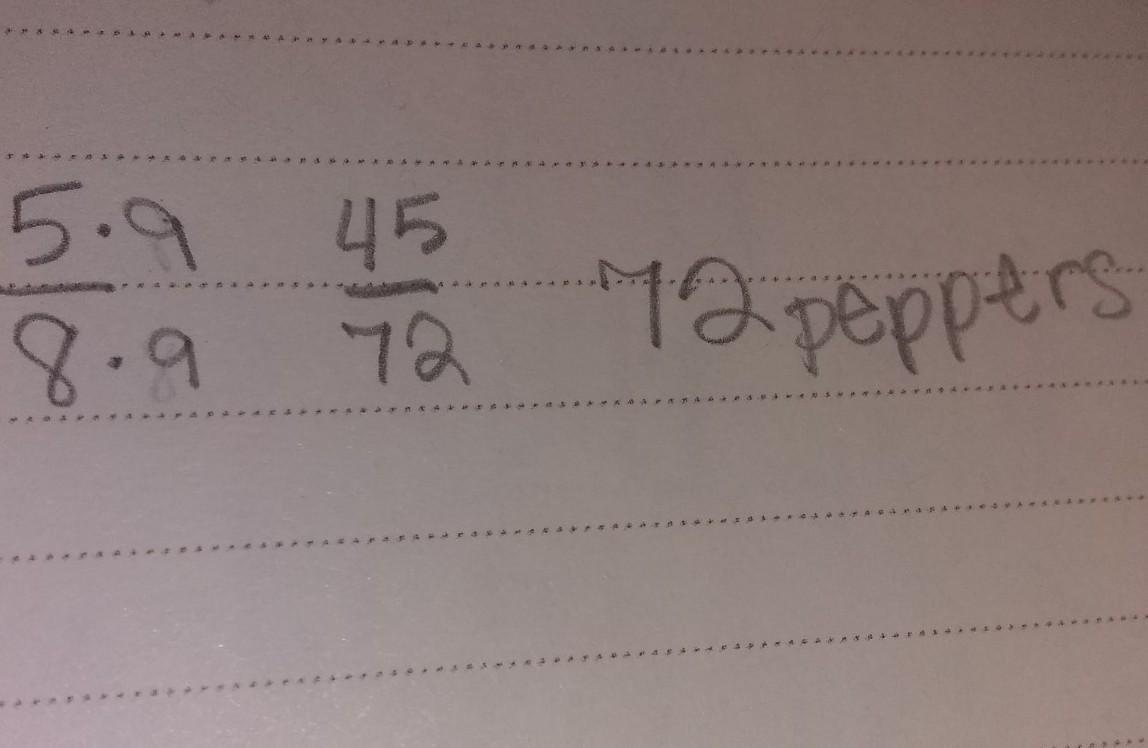 5·9 / 8·9 45 / 72 72 peppers